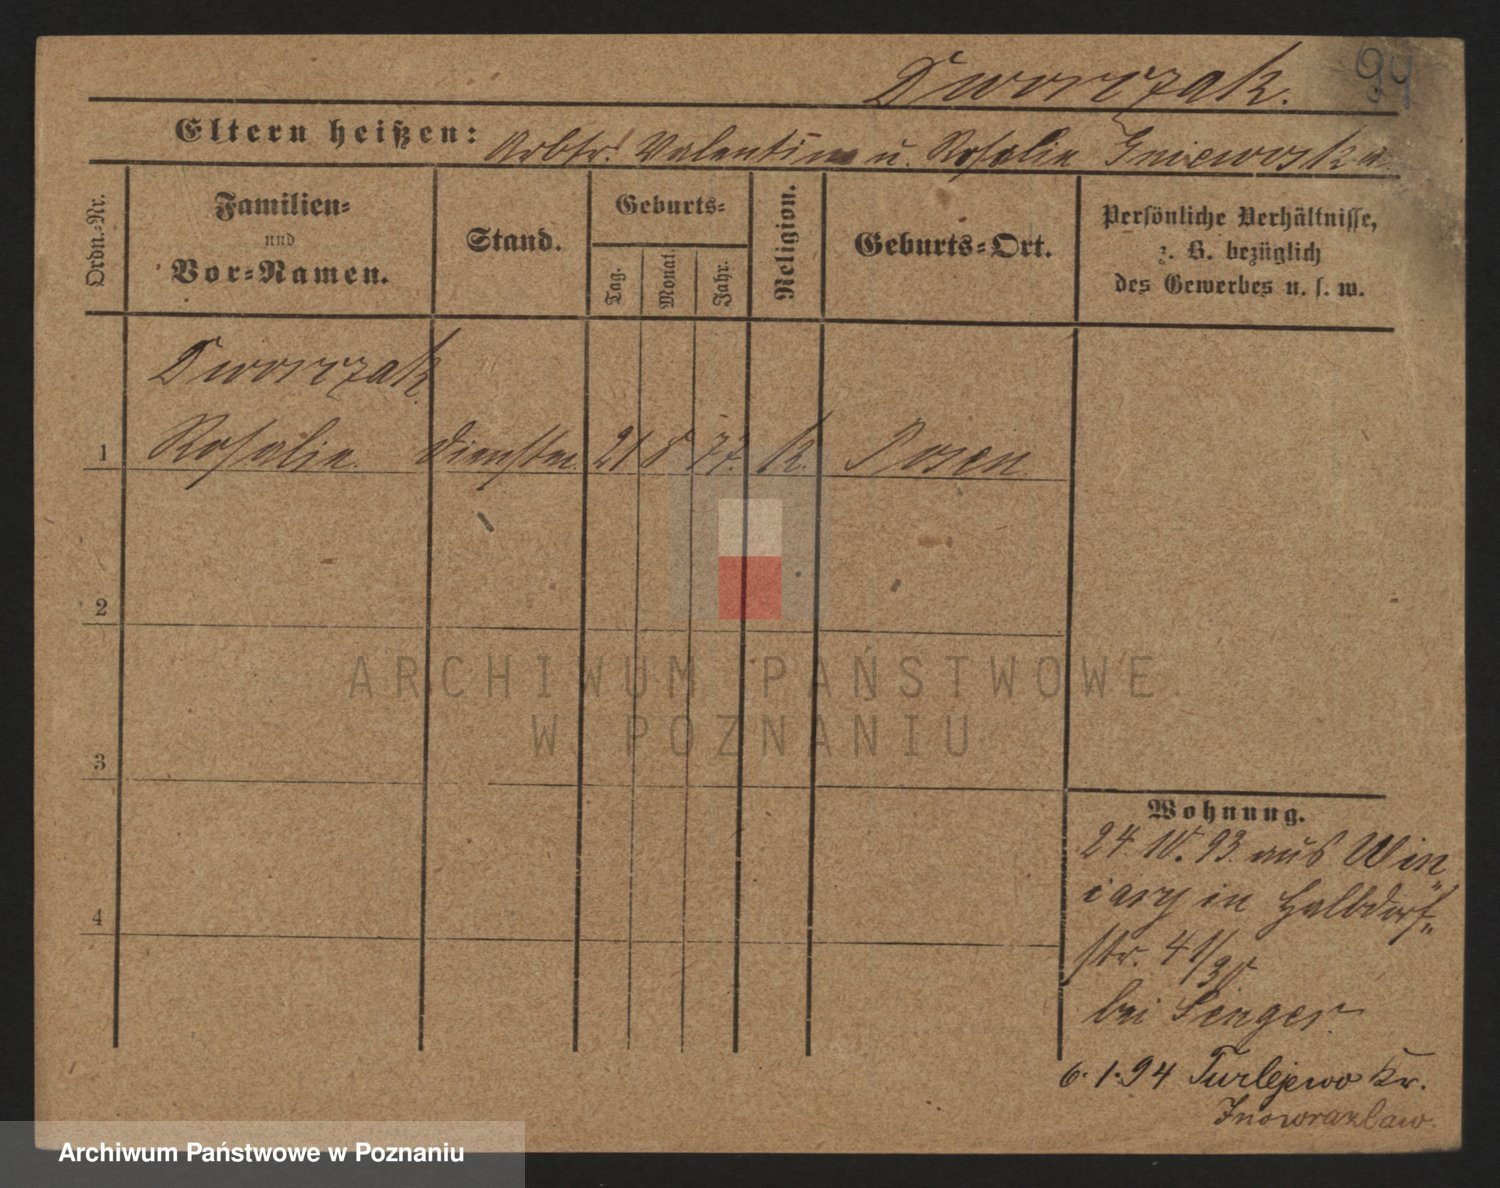 Dworczak.
94
Eltern heißen: Arbtr. Valentin u. Rosalie Gniewoska
Ordn.-Nr.
Familien-
und
Vor-Namen.
Stand.
Geburts-
Tag.
Monat.
Jahr.
Religion.
Geburts-Ort.
Persönliche Verhältnisse,
z. B. bezüglich
des Gewerbes u. s. w.
Dworczak
1 Rosalie. 21 8 77. k. Posen
2
3
4
ARCHIWUM PAŃSTWOWE
W POZNANIU
Wohnung.
24. 10. 93. aus Win
iary in Halbdorf
str.
bei Singer
6.1.94 Turlejewo Kr.
Inowrazlaw.
Archiwum Państwowe w Poznaniu